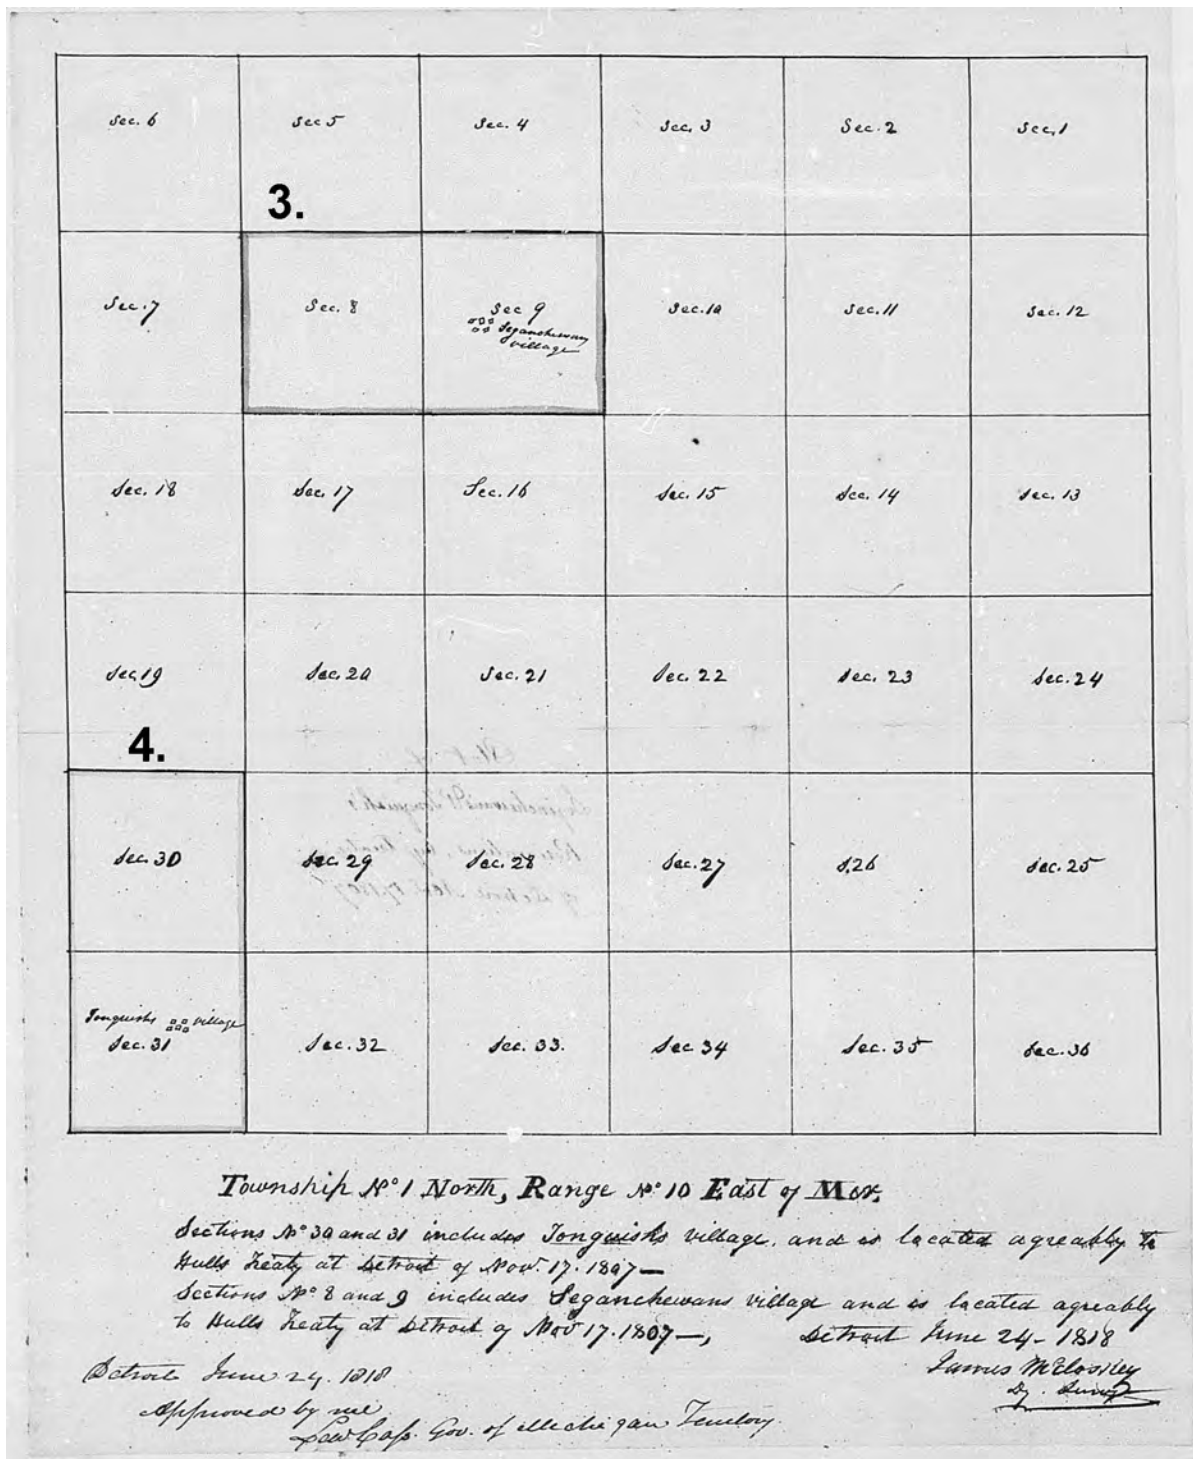 Sec. 6 Sec 5 Sec. 4 Sec. 3 Sec. 2 Sec. 1
3.
Sec. 7 Sec. 8 Sec 9 Sec. 10 Sec. 11 Sec. 12
Seganchewans
village
Sec. 18 Sec. 17 Sec. 16 Sec. 15 Sec. 14 Sec. 13
Sec. 19 Sec. 20 Sec. 21 Sec. 22 Sec. 23 Sec. 24
4.
Sec. 30 Sec. 29 Sec. 28 Sec. 27 S. 26 Sec. 25
Tonquishs village
Sec. 31 Sec. 32 Sec. 33. Sec 34 Sec. 35 Sec. 36
Township No 1 North, Range No 10 East of Mer.
Sections No 30 and 31 includes Tonquishs village. and is located agreably to
Hulls Treaty at Detroit of Nov. 17. 1807—
Sections No 8 and 9 includes Seganchewans village and is located agreably
to Hulls Treaty at Detroit of Nov 17. 1807—, Detroit June 24 - 1818
James McCloskey
Dy. Survr
Detroit June 24. 1818
Approved by me
Lew Cass. Gov. of Michigan Territory.